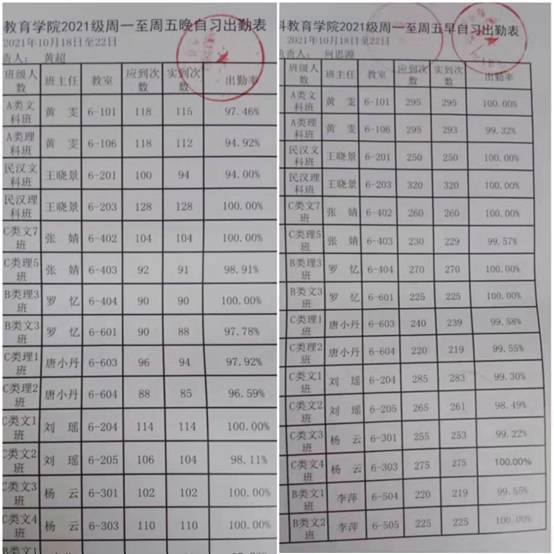 教育学院2021级周一至周五晚自习出勤表
2021年10月18日至22日
责人: 黄超
班级人数 班主任 教室 应到次数 实到次数 出勤率
A类文科班 黄 雯 6-101 118 115 97.46%
A类理科班 黄 雯 6-106 118 112 94.92%
民汉文科班 王晓景 6-201 100 94 94.00%
民汉理科班 王晓景 6-203 128 128 100.00%
C类文7班 张 婧 6-402 104 104 100.00%
C类理5班 张 婧 6-403 92 91 98.91%
B类理3班 罗 忆 6-404 90 90 100.00%
B类文3班 罗 忆 6-601 90 88 97.78%
C类理1班 唐小丹 6-603 96 94 97.92%
C类理2班 唐小丹 6-604 88 85 96.59%
C类文1班 刘 瑶 6-204 114 114 100.00%
C类文2班 刘 瑶 6-205 106 104 98.11%
C类文3班 杨 云 6-301 102 102 100.00%
C类文4班 杨 云 6-303 110 110 100.00%
科教育学院2021级周一至周五早自习出勤表
2021年10月18日至22日
责人: 何思源
班级人数 班主任 教室 应到次数 实到次数 出勤率
A类文科班 黄 雯 6-101 295 295 100.00%
A类理科班 黄 雯 6-106 295 293 99.32%
民汉文科班 王晓景 6-201 250 250 100.00%
民汉理科班 王晓景 6-203 320 320 100.00%
C类文7班 张 婧 6-402 260 260 100.00%
C类理5班 张 婧 6-403 230 229 99.57%
B类理3班 罗 忆 6-404 270 270 100.00%
B类文3班 罗 忆 6-601 225 225 100.00%
C类理1班 唐小丹 6-603 240 239 99.58%
C类理2班 唐小丹 6-604 220 219 99.55%
C类文1班 刘 瑶 6-204 285 283 99.30%
C类文2班 刘 瑶 6-205 265 261 98.49%
C类文3班 杨 云 6-301 255 253 99.22%
C类文4班 杨 云 6-303 275 275 100.00%
B类文1班 李萍 6-504 220 219 99.55%
B类文2班 李萍 6-505 225 225 100.00%